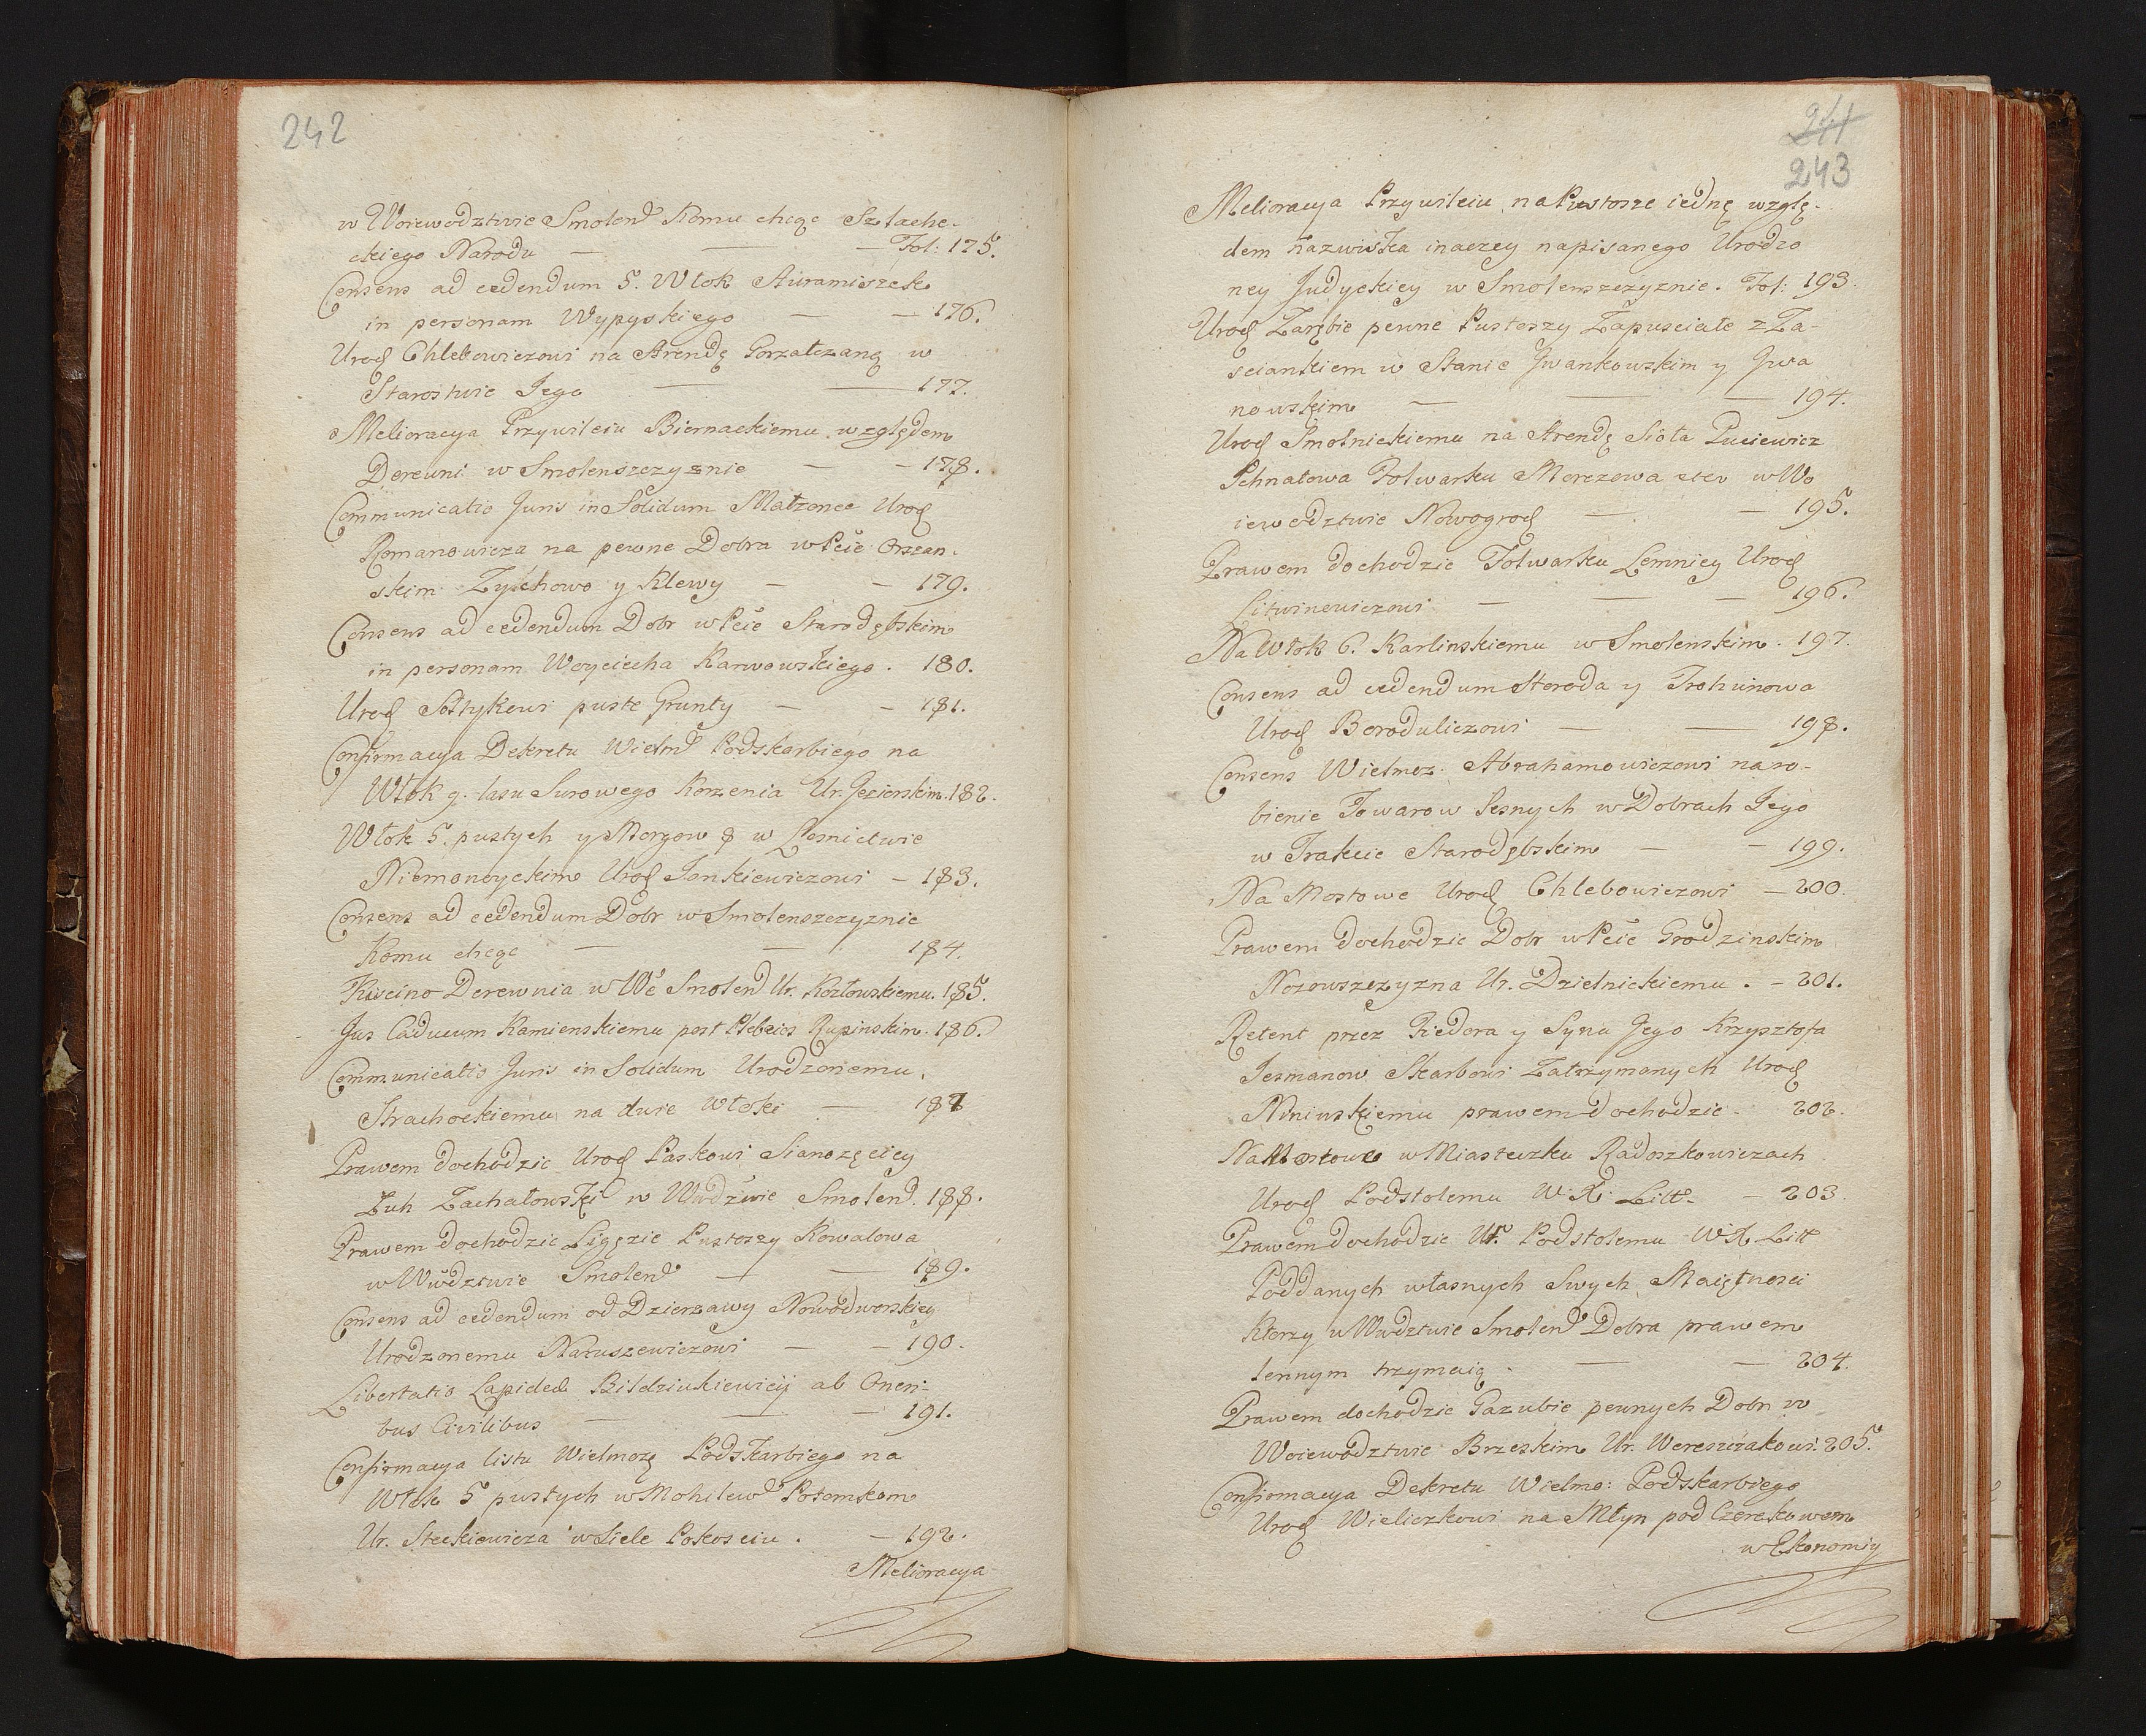 242
w Woiewodztwie Smolen Komu chcąc Szlache-
ckiego Narodu — — — Fol: 175.
Consens ad cedendum 5. Włok Auramiszek
in personam Wypyskiego — — 176.
Urod Chlebowiczowi na Arendę Gorzałczaną w
Starostwie Jego — — 177.
Melioracya Przywileiu Biernackiemu względem
Derewni w Smolenszczyznie — — 178.
Communicatio Juris in Solidum Małzonce Urod
Romanowicza na pewne Dobra w Pcie Orszan-
skim Zyichowo y Klewy — — 179.
Consens ad cedendum Dobr w Pcie Starodębskim
in personam Woyciecha Karwowskiego. 180.
Urod Sołtykowi puste Grunty — — 181.
Confirmacya Dekretu Wielm Podskarbiego na
Włok 9. lasu Surowego Korzenia Ur. Jezierskim. 182.
Włok 5. pustych y Morgow 8 w Lesnictwie
Niemonoyckim Urod Jankiewiczowi — 183.
Consens ad cedendum Dobr w Smolenszczyznie
Komu chcąc — — 184.
Kiścino Derewnia w We Smolen Ur. Kozłowskiemu. 185.
Jus Caducum Kamienskiemu post Plebeios Rupinskim. 186.
Communicatio Juris in Solidum Urodzonemu
Strachockiemu na dwie Włoki — 187
Prawem dochodzic Urod Paskowi Sianozęciey
Łuh Zachałowski w Wwdztwie Smolen. 188.
Prawem dochodzic Ligęzie Pustoszy Kowalowa
w Wwdztwie Smolen — — 189.
Consens ad cedendum od Dzierzawy Nowodworskiey
Urodzonemu Naruszewiczowi — — 190.
Libertatio Lapidea Bildziukiewicij ab Oneri-
bus Civilibus — — — 191.
Confirmacya listu Wielmoz Podskarbiego na
Włok 5 pustych w Mohilew Potomkom
Ur. Steckiewicza w Siele Pokosciu. — 192.
Melioracya
241
243
Melioracya Przywileiu na Pustosze iednę wzglę-
dem nazwiska inaczey napisanego Urodzo
ney Judyckiey w Smolenszczyznie. Fol: 193.
Urod Zarębie pewne Pustoszy Zapusciałe z Za-
sciankiem w Stanie Jwankowskim y Jwa
nowskim — — — 194.
Urod Smolnickiemu na Arendę Sioła Puciewicz
Pchnatowa Folwarku Morozowa etc w Wo
iewodztwie Nowogrod — — 195.
Prawem dochodzic Folwarku Lemnicy Urod
Litwinowiczowi — — — 196.
Na Włok 6. Karlinskiemu w Smolenskim. 197.
Consens ad cedendum Horoda y Trohinowa
Urod Boroduliczowi — — 198.
Consens Wielmoz. Abrahamowiczowi na ro-
bienie Towarow Lesnych w Dobrach Jego
w Trakcie Starodębskim — — 199.
Na Mostowe Urod Chlebowiczowi — 200.
Prawem dochodzic Dobr w Pcie Grodzinskim
Nozowszczyzna Ur. Dzielnickiemu. — 201.
Retent przez Fiedora y Syna Jego Krzysztofa
Jesmanow Skarbowi Zatrzymanych Urod
Niniuskiemu prawem dochodzic — 202.
Na Mostowe w Miasteczku Radoszkowiczach
Urod Podstolemu W. X. Litt. — 203.
Prawem dochodzic Ur. Podstolemu W X. Litt
Poddanych własnych Swych Maiętnosci
Ktorzy w Wwdztwie Smolen Dobra prawem
lennym trzymaią. — — 204.
Prawem dochodzic Gazubie pewnych Dobr w
Woiewodztwie Brzeskim Ur. Wereszczakowi. 205.
Confirmacya Dekretu Wielmo: Podskarbiego
Urod Wieliczkowi na Młyn pod Czerekowem
w Ekonomiy